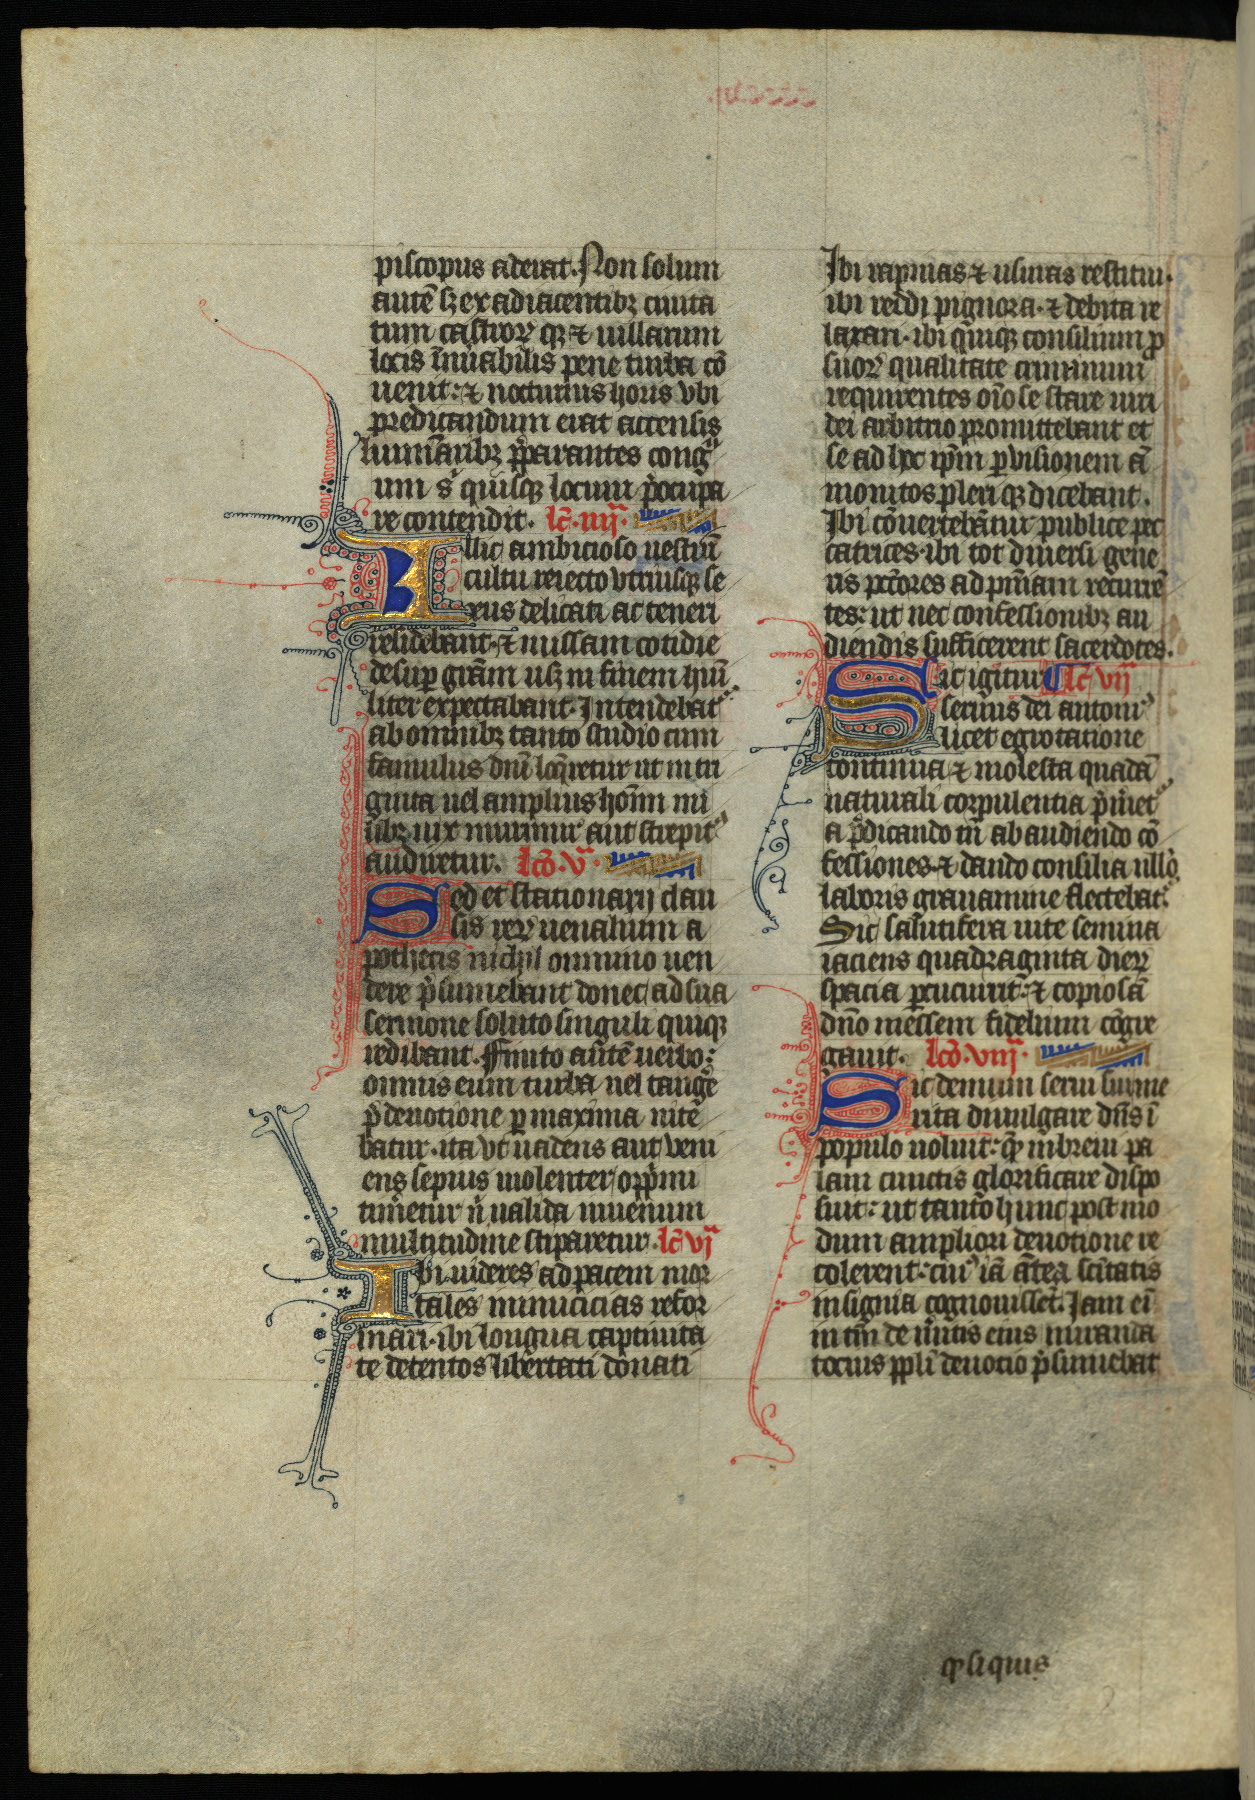 piscopus aderat. Non solum
autē sȝ ex adiacentibȝ ciuita
tum castroꝝ qȝ ⁊ uillarum
locis īnūabilis pene turba cō
uenit: ⁊ nocturnis horis vbi
predicandum erat accensis
luminaribȝ p̄parantes
um quisqȝ locum p̄ocupa
re contendit. lc̄. iiij.
Illic ambicioso uestiū
cultu reiecto vtriusqȝ se
xus delicati ac teneri
residebant. ⁊ missam cotidie
desuꝑ usqȝ in finem
liter expectabant. Intendebat᷒
ab omnibȝ tanto studio cum
famulus dn̄i loq̄retur ut in tri
ginta uel amplius hoīm mi
libȝ uix murmur aut strepit᷒
audiretur. lc̄o. v.
Sed et stationarij clau
sis reꝝ uenalium a
pothecis nichil omnino uen
dere p̄sumebant donec ad sua
sermone soluto singuli quiqȝ
redibant. Finito autē uerbo:
omnis eum turba uel tangē
p̄ deuotione ꝑmaxima nite
batur. ita vt uadens aut veni
ens sepius uiolenter opp̄mi
tim̄etur n̄ ualida iuuenum
multitudine stiparetur. lc̄ vj
Ibi uideres ad pacem moꝝ
tales inimicicias refor
mari. ibi longua captiuita
te detentos libertati donati
Ibi rapinas ⁊ usuras restitui.
ibi reddi pignora. ⁊ debita re
laxari. ibi quiqȝ consilium ꝓ
suoꝝ qualitate criminum
requirentes oīo se stare uiri
dei arbitrio promittebant et
se ad hoc ip̄m ꝑ visionem a
monitos pleri qȝ dicebant.
Ibi cōuertebātur publice pec
catrices. ibi tot diuersi gene
ris pctōres ad pn̄iam recurrē
tes: ut nec confessionibȝ au
diendis sufficerent sacerdotes.
Sic igitur lc̄ vij
seruus dei antoni᷒
licet egrotatione
continua ⁊ molesta quadā
naturali corpulentia p̄meret᷒
a p̄dicando tn̄ ab audiendo cō
fessiones. ⁊ dando consilia ullo
laboris grauamine flectebat᷒.
Sic salutifera uite semina
iaciens quadraginta dieꝝ
spacia ꝑcucurrit: ⁊ copiosā
dn̄o messem fidelium cōgre
gauit. lc̄o. viij.
Sic demum serui sui me
rita diuulgare dn̄s ī
populo uoluit: qͥ in breui pa
lam cunctis glorificare dispo
suit: ut tanto hunc post mo
dum ampliori deuotione re
colerent: cui᷒ iā ātea sc̄itatis
insignia cognouisset. Iam ei
in tm̄ de m̄itis eius miranda
tocius ppl̄i deuotio p̄sumebat
qͥ si quis